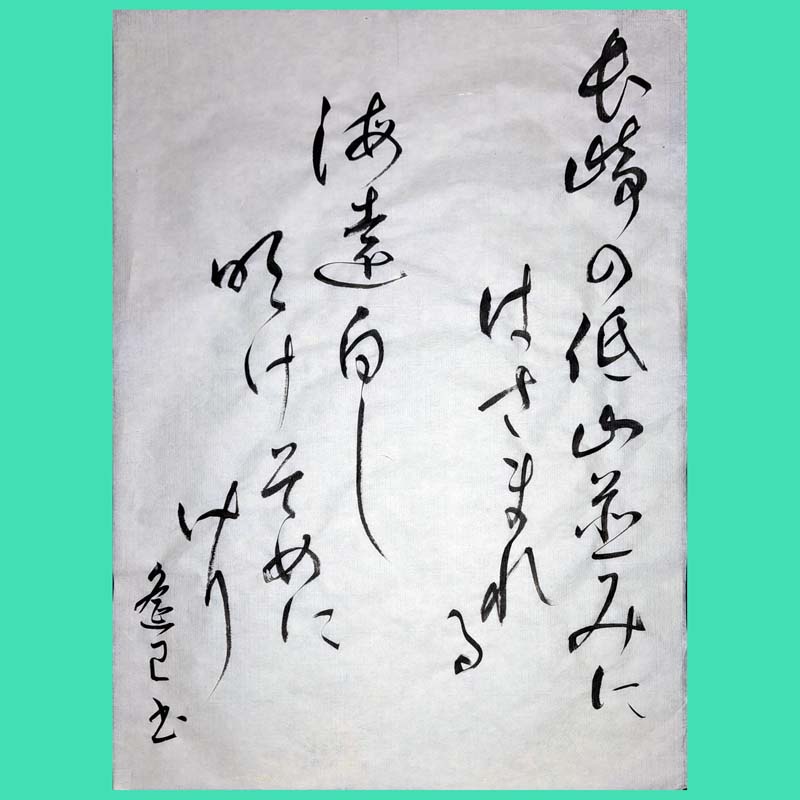 長崎の低山並みに
はさまれる
海遠白し
明けそめに
けり
書